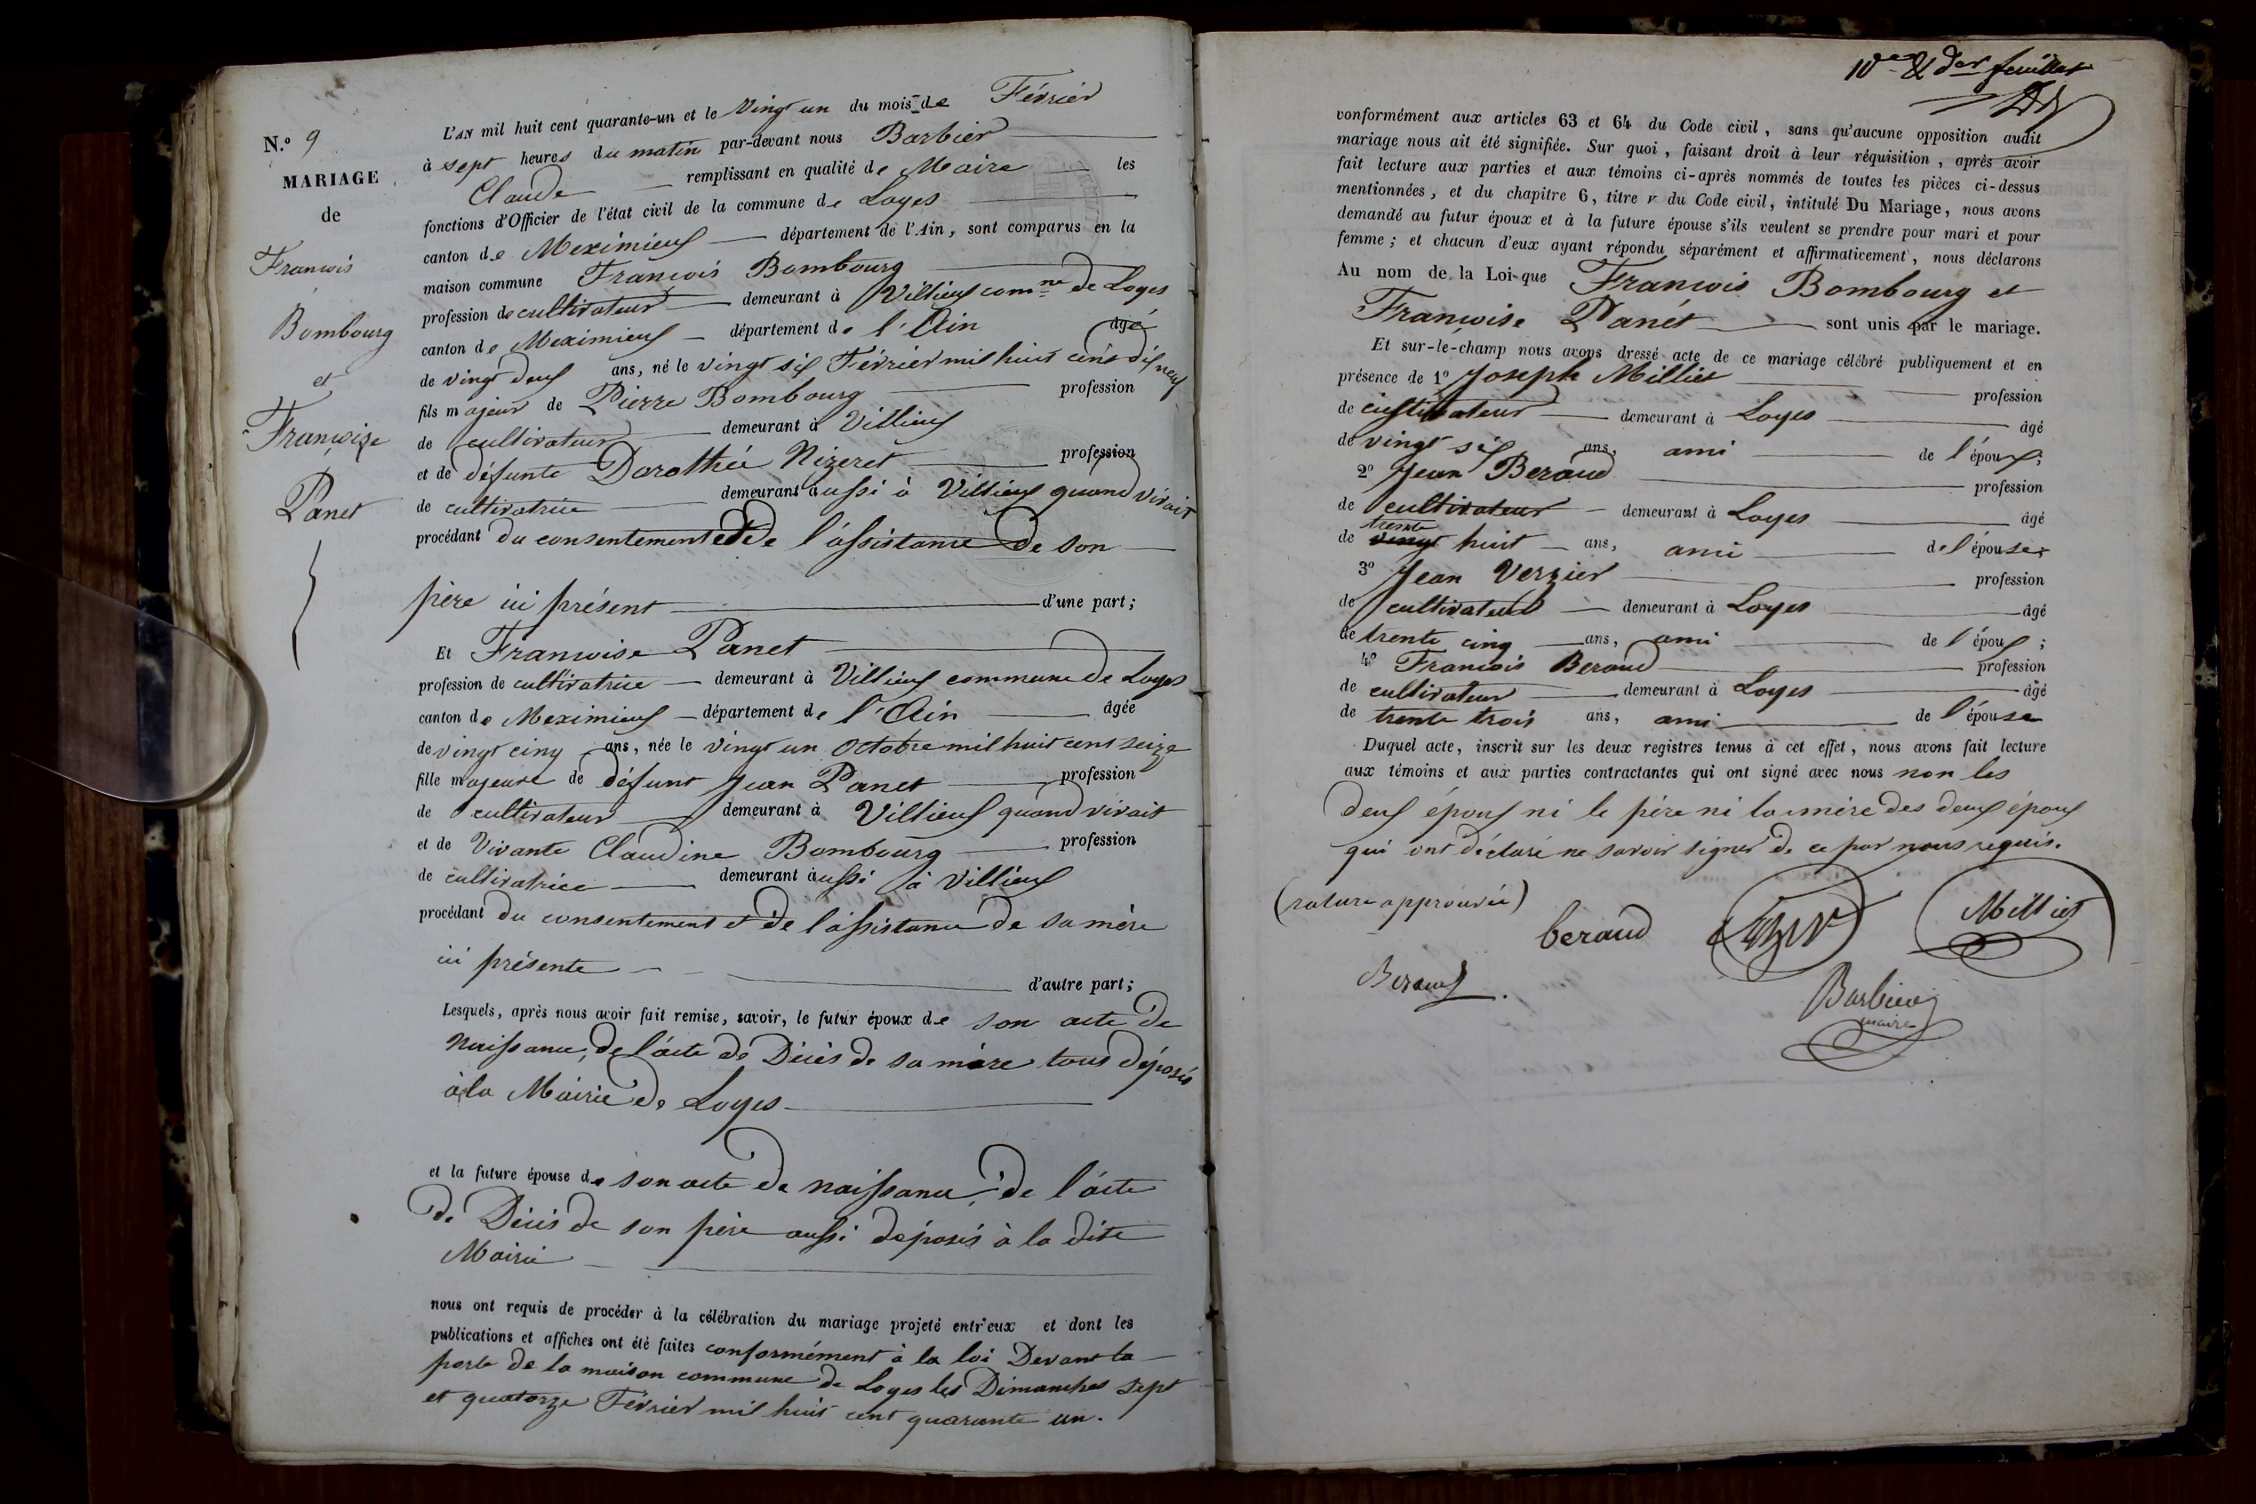 N.º 9
MARIAGE
de
François
Bombourg
et
Françoise
Panet
L'AN mil huit cent quarante-un et le vingt un du mois de Février
à sept heures du matin par-devant nous Barbier
Claude remplissant en qualité de Maire les
fonctions d'Officier de l'état civil de la commune de Loyes
canton de Meximieux département de l'Ain, sont comparus en la
maison commune François Bombourg
profession de cultivateur demeurant à Villieux comne de Loyes
canton de Meximieux département de l'Ain âgé
de vingt deux ans, né le vingt six Février mil huit cent dix neuf
fils majeur de Pierre Bombourg profession
de cultivateur demeurant à Villieux
et de défunte Dorothée Nizeret profession
de cultivatrice demeurant aussi à Villieux quand vivait
procédant du consentement et de l'assistance de son
père ici présent d'une part;
Et Françoise Panet
profession de cultivatrice demeurant à Villieux commune de Loyes
canton de Meximieux département de l'Ain âgée
de vingt cinq ans, née le vingt un Octobre mil huit cent seize
fille majeure de défunt Jean Panet profession
de cultivateur demeurant à Villieux quand vivait
et de Vivante Claudine Bombourg profession
de cultivatrice demeurant aussi à Villieux
procédant du consentement et de l'assistance de sa mère
ici présente d'autre part;
Lesquels, après nous avoir fait remise, savoir, le futur époux de son acte de
Naissance, de l'acte de Décès de sa mère tous déposés
à la Mairie de Loyes
et la future épouse de son acte de naissance, de l'acte
de Décès de son père aussi déposés à la dite
Mairie
nous ont requis de procéder à la célébration du mariage projeté entr'eux et dont les
publications et affiches ont été faites conformément à la loi Devant la
porte de la maison commune de Loyes les Dimanches sept
et quatorze Février mil huit cent quarante un.
10e & der feuillet
conformément aux articles 63 et 64 du Code civil, sans qu'aucune opposition audit
mariage nous ait été signifiée. Sur quoi, faisant droit à leur réquisition, après avoir
fait lecture aux parties et aux témoins ci-après nommés de toutes les pièces ci-dessus
mentionnées, et du chapitre 6, titre v du Code civil, intitulé Du Mariage, nous avons
demandé au futur époux et à la future épouse s'ils veulent se prendre pour mari et pour
femme; et chacun d'eux ayant répondu séparément et affirmativement, nous déclarons
Au nom de la Loi que François Bombourg et
Françoise Panet sont unis par le mariage.
Et sur-le-champ nous avons dressé acte de ce mariage célébré publiquement et en
présence de 1º Joseph Milliet profession
de cultivateur demeurant à Loyes âgé
de vingt six ans, ami de l'époux;
2º Jean Beraud profession
de cultivateur demeurant à Loyes âgé
trente
de vingt huit ans, ami de l'épouse;
3º Jean Verzier profession
de cultivateur demeurant à Loyes âgé
de trente cinq ans, ami de l'époux;
4º François Beraud profession
de cultivateur demeurant à Loyes âgé
de trente trois ans, ami de l'épouse
Duquel acte, inscrit sur les deux registres tenus à cet effet, nous avons fait lecture
aux témoins et aux parties contractantes qui ont signé avec nous non les
deux époux ni le père ni la mère des deux époux
qui ont déclaré ne savoir signer de ce par nous requis.
(rature approuvée)
beraud
Milliet
Beraud
Barbier
maire